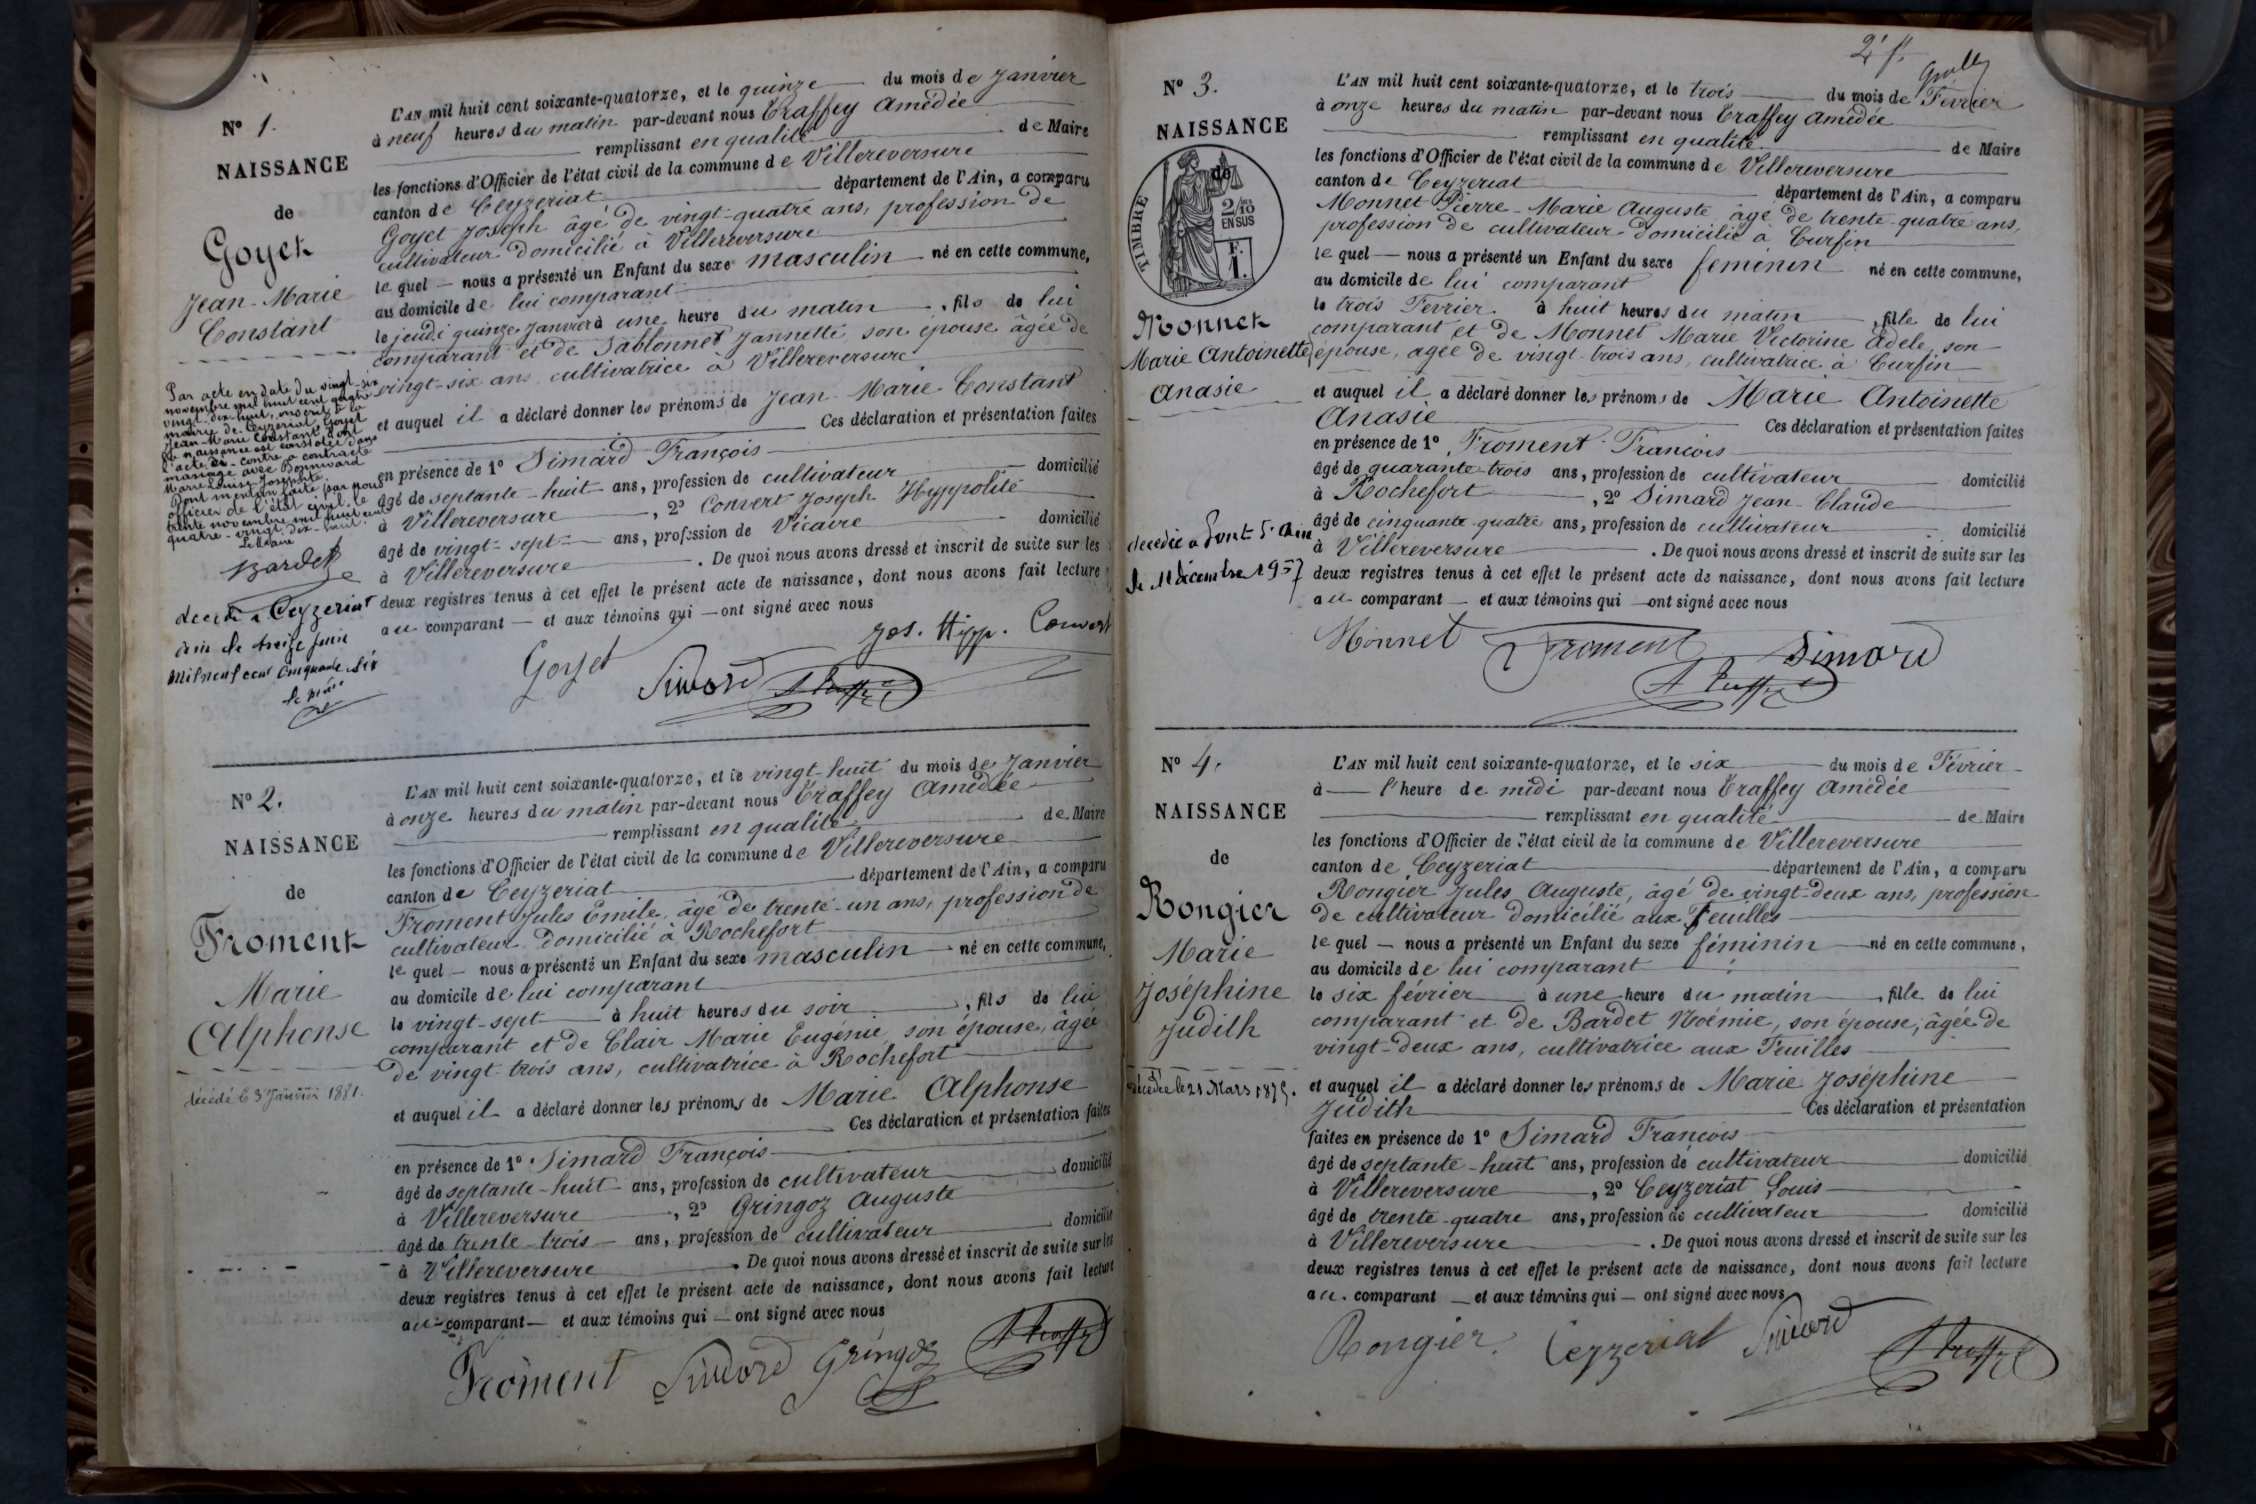 N° 1.
NAISSANCE
de
Goyet
Jean-Marie
Constant
Par acte en date du vingt-six
novembre mil huit cent quatre
vingt-dix-huit, inscrit à la
mairie de Ceyzeriat, Goyet
Jean-Marie Constant dont
la naissance est constatée dans
l'acte ci-contre a contracté
mariage avec Bonnivard
Marie Louise Josephte.
Dont mention faite par nous
officier de l'état civil le
trente novembre mil huit cent
quatre-vingt-dix-huit.
Le Maire
Bardet
décédé à Ceyzeriat
Ain le treize juin
mil neuf cent cinquante six
L'AN mil huit cent soixante-quatorze, et le quinze du mois de Janvier
à neuf heures du matin par-devant nous Traffey Amédée
remplissant en qualité de Maire
les fonctions d'Officier de l'état civil de la commune de Villereversure
canton de Ceyzeriat département de l'Ain, a comparu
Goyet Joseph âgé de vingt-quatre ans, profession de
cultivateur domicilié à Villereversure
lequel — nous a présenté un Enfant du sexe masculin né en cette commune,
au domicile de lui comparant
le jeudi quinze Janvier à une heure du matin, fils de lui
comparant et de Sablonnet Jannette son épouse âgée de
vingt-six ans cultivatrice à Villereversure
et auquel il a déclaré donner les prénoms de Jean-Marie-Constant
Ces déclaration et présentation faites
en présence de 1° Simard François
âgé de septante-huit ans, profession de cultivateur domicilié
à Villereversure, 2° Convert Joseph Hyppolite
âgé de vingt-sept ans, profession de Vicaire domicilié
à Villereversure. De quoi nous avons dressé et inscrit de suite sur les
deux registres tenus à cet effet le présent acte de naissance, dont nous avons fait lecture
au comparant — et aux témoins qui — ont signé avec nous
Jos. Hipp. Convert
Goyet Simard A Traffey
N° 2.
NAISSANCE
de
Froment
Marie
Alphonse
décédé le 3 Janvier 1881.
L'AN mil huit cent soixante-quatorze, et le vingt-huit du mois de Janvier
à onze heures du matin par-devant nous Traffey Amédée
remplissant en qualité de Maire
les fonctions d'Officier de l'état civil de la commune de Villereversure
canton de Ceyzeriat département de l'Ain, a comparu
Froment Jules Emile, âgé de trente-un ans, profession de
cultivateur domicilié à Rochefort
lequel — nous a présenté un Enfant du sexe masculin né en cette commune,
au domicile de lui comparant
le vingt-sept à huit heures du soir, fils de lui
comparant et de Clair Marie Eugénie son épouse, âgée
de vingt-trois ans, cultivatrice à Rochefort
et auquel il a déclaré donner les prénoms de Marie Alphonse
Ces déclaration et présentation faites
en présence de 1° Simard François
âgé de septante-huit ans, profession de cultivateur domicilié
à Villereversure, 2° Gringoz Auguste
âgé de trente-trois ans, profession de cultivateur domicilié
à Villereversure. De quoi nous avons dressé et inscrit de suite sur les
deux registres tenus à cet effet le présent acte de naissance, dont nous avons fait lecture
au comparant — et aux témoins qui — ont signé avec nous
Froment Simard Gringoz A Traffey
2e f.
N° 3.
NAISSANCE
de
TIMBRE
2/10 EN SUS
1 F.
Monnet
Marie Antoinette
Anasie
décédée à Pont d'Ain
le 11 décembre 1957
L'AN mil huit cent soixante-quatorze, et le trois du mois de Février
à onze heures du matin par-devant nous Traffey Amédée
remplissant en qualité de Maire
les fonctions d'Officier de l'état civil de la commune de Villereversure
canton de Ceyzeriat département de l'Ain, a comparu
Monnet Pierre-Marie Auguste âgé de trente-quatre ans,
profession de cultivateur domicilié à Turfin
lequel — nous a présenté un Enfant du sexe feminin né en cette commune,
au domicile de lui comparant
le trois Fevrier à huit heures du matin, fille de lui
comparant et de Monnet Marie Victorine Adele, son
épouse, agée de vingt-trois ans, cultivatrice à Turfin
et auquel il a déclaré donner les prénoms de Marie Antoinette
Anasie Ces déclaration et présentation faites
en présence de 1° Froment François
âgé de quarante-trois ans, profession de cultivateur domicilié
à Rochefort, 2° Simard Jean-Claude
âgé de cinquante-quatre ans, profession de cultivateur domicilié
à Villereversure. De quoi nous avons dressé et inscrit de suite sur les
deux registres tenus à cet effet le présent acte de naissance, dont nous avons fait lecture
au comparant — et aux témoins qui — ont signé avec nous
Monnet Froment Simard
A Traffey
N° 4.
NAISSANCE
de
Rongier
Marie
Joséphine
Judith
décédée le 21 Mars 1875.
L'AN mil huit cent soixante-quatorze, et le six du mois de Février
à — l'heure de midi par-devant nous Traffey Amédée
remplissant en qualité de Maire
les fonctions d'Officier de l'état civil de la commune de Villereversure
canton de Ceyzeriat département de l'Ain, a comparu
Rongier Jules Auguste, âgé de vingt-deux ans, profession
de cultivateur domicilié aux Feuilles
lequel — nous a présenté un Enfant du sexe féminin né en cette commune,
au domicile de lui comparant
le six février à une heure du matin, fille de lui
comparant et de Bardet Noémie, son épouse, âgée de
vingt-deux ans, cultivatrice aux Feuilles
et auquel il a déclaré donner les prénoms de Marie Joséphine
Judith Ces déclaration et présentation
faites en présence de 1° Simard François
âgé de septante-huit ans, profession de cultivateur domicilié
à Villereversure, 2° Ceyzeriat Louis
âgé de trente-quatre ans, profession de cultivateur domicilié
à Villereversure. De quoi nous avons dressé et inscrit de suite sur les
deux registres tenus à cet effet le présent acte de naissance, dont nous avons fait lecture
au comparant — et aux témoins qui — ont signé avec nous
Rongier. Ceyzeriat Simard A Traffey